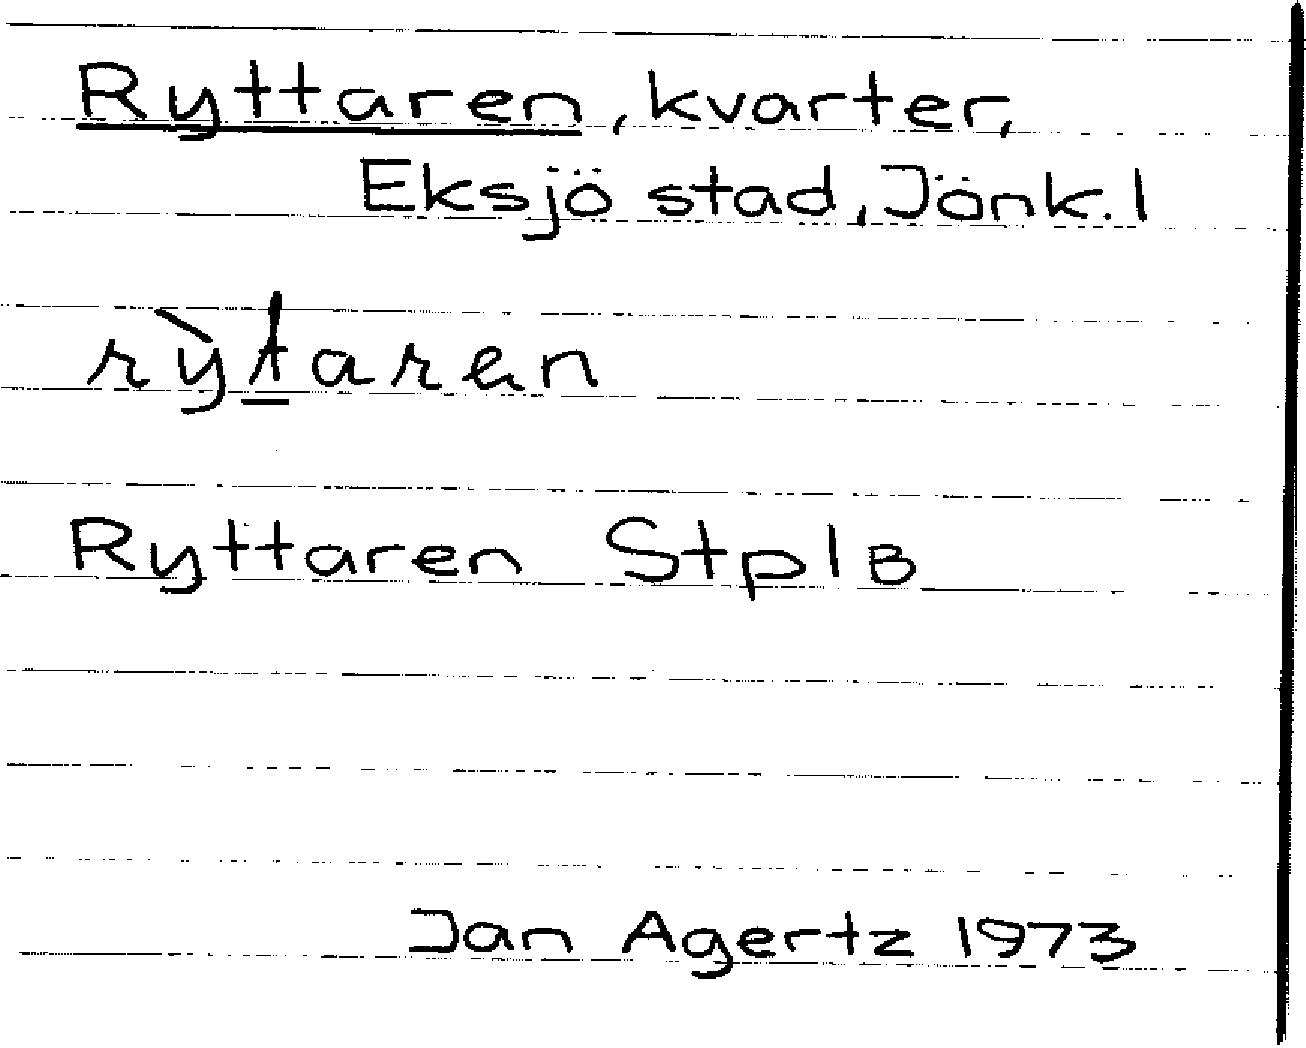 Ryttaren, kvarter,
Eksjö stad, Jönk. l
rỳt̲aren
Ryttaren Stpl B
Jan Agertz 1973